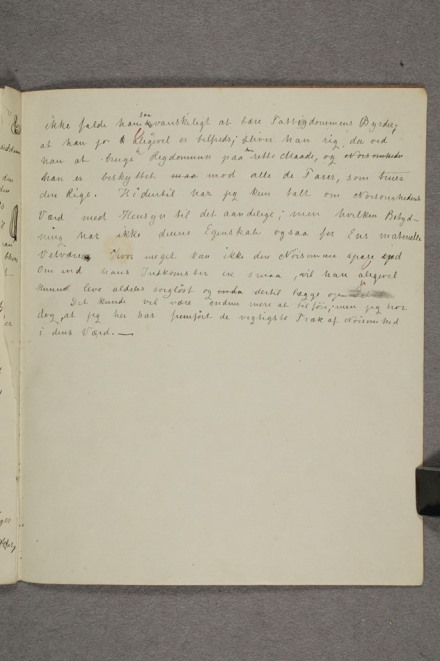 ikke falde ham saa vanskeligt at bære Fattigdommens Byrder,
at han jo er tilfreds; bliver han rig, da ved
han at bruge Rigdommen paa rette Maade, og
han er beskyttet mod alle de Farer, som true
den Rige. Hidentil har jeg kun talt om Nøisomhedens
Værd med Hensyn til det aandelige; men hvilken Betyd-
ning har ikke denne Egenskab ogsaa for Ens materielle
Velvære. Hvor meget kan ikke den Nøisomme spare
Om end hans Indkomster ere smaa, vil han alligevel
kunne leve aldeles sorgløst og endda dertil lægge op
Det kunde vel være endnu mere at tilføie; men jeg tror
dog, at jeg her har fremført de vigtigste Træk af Nøisomhed
i dens Værd. —